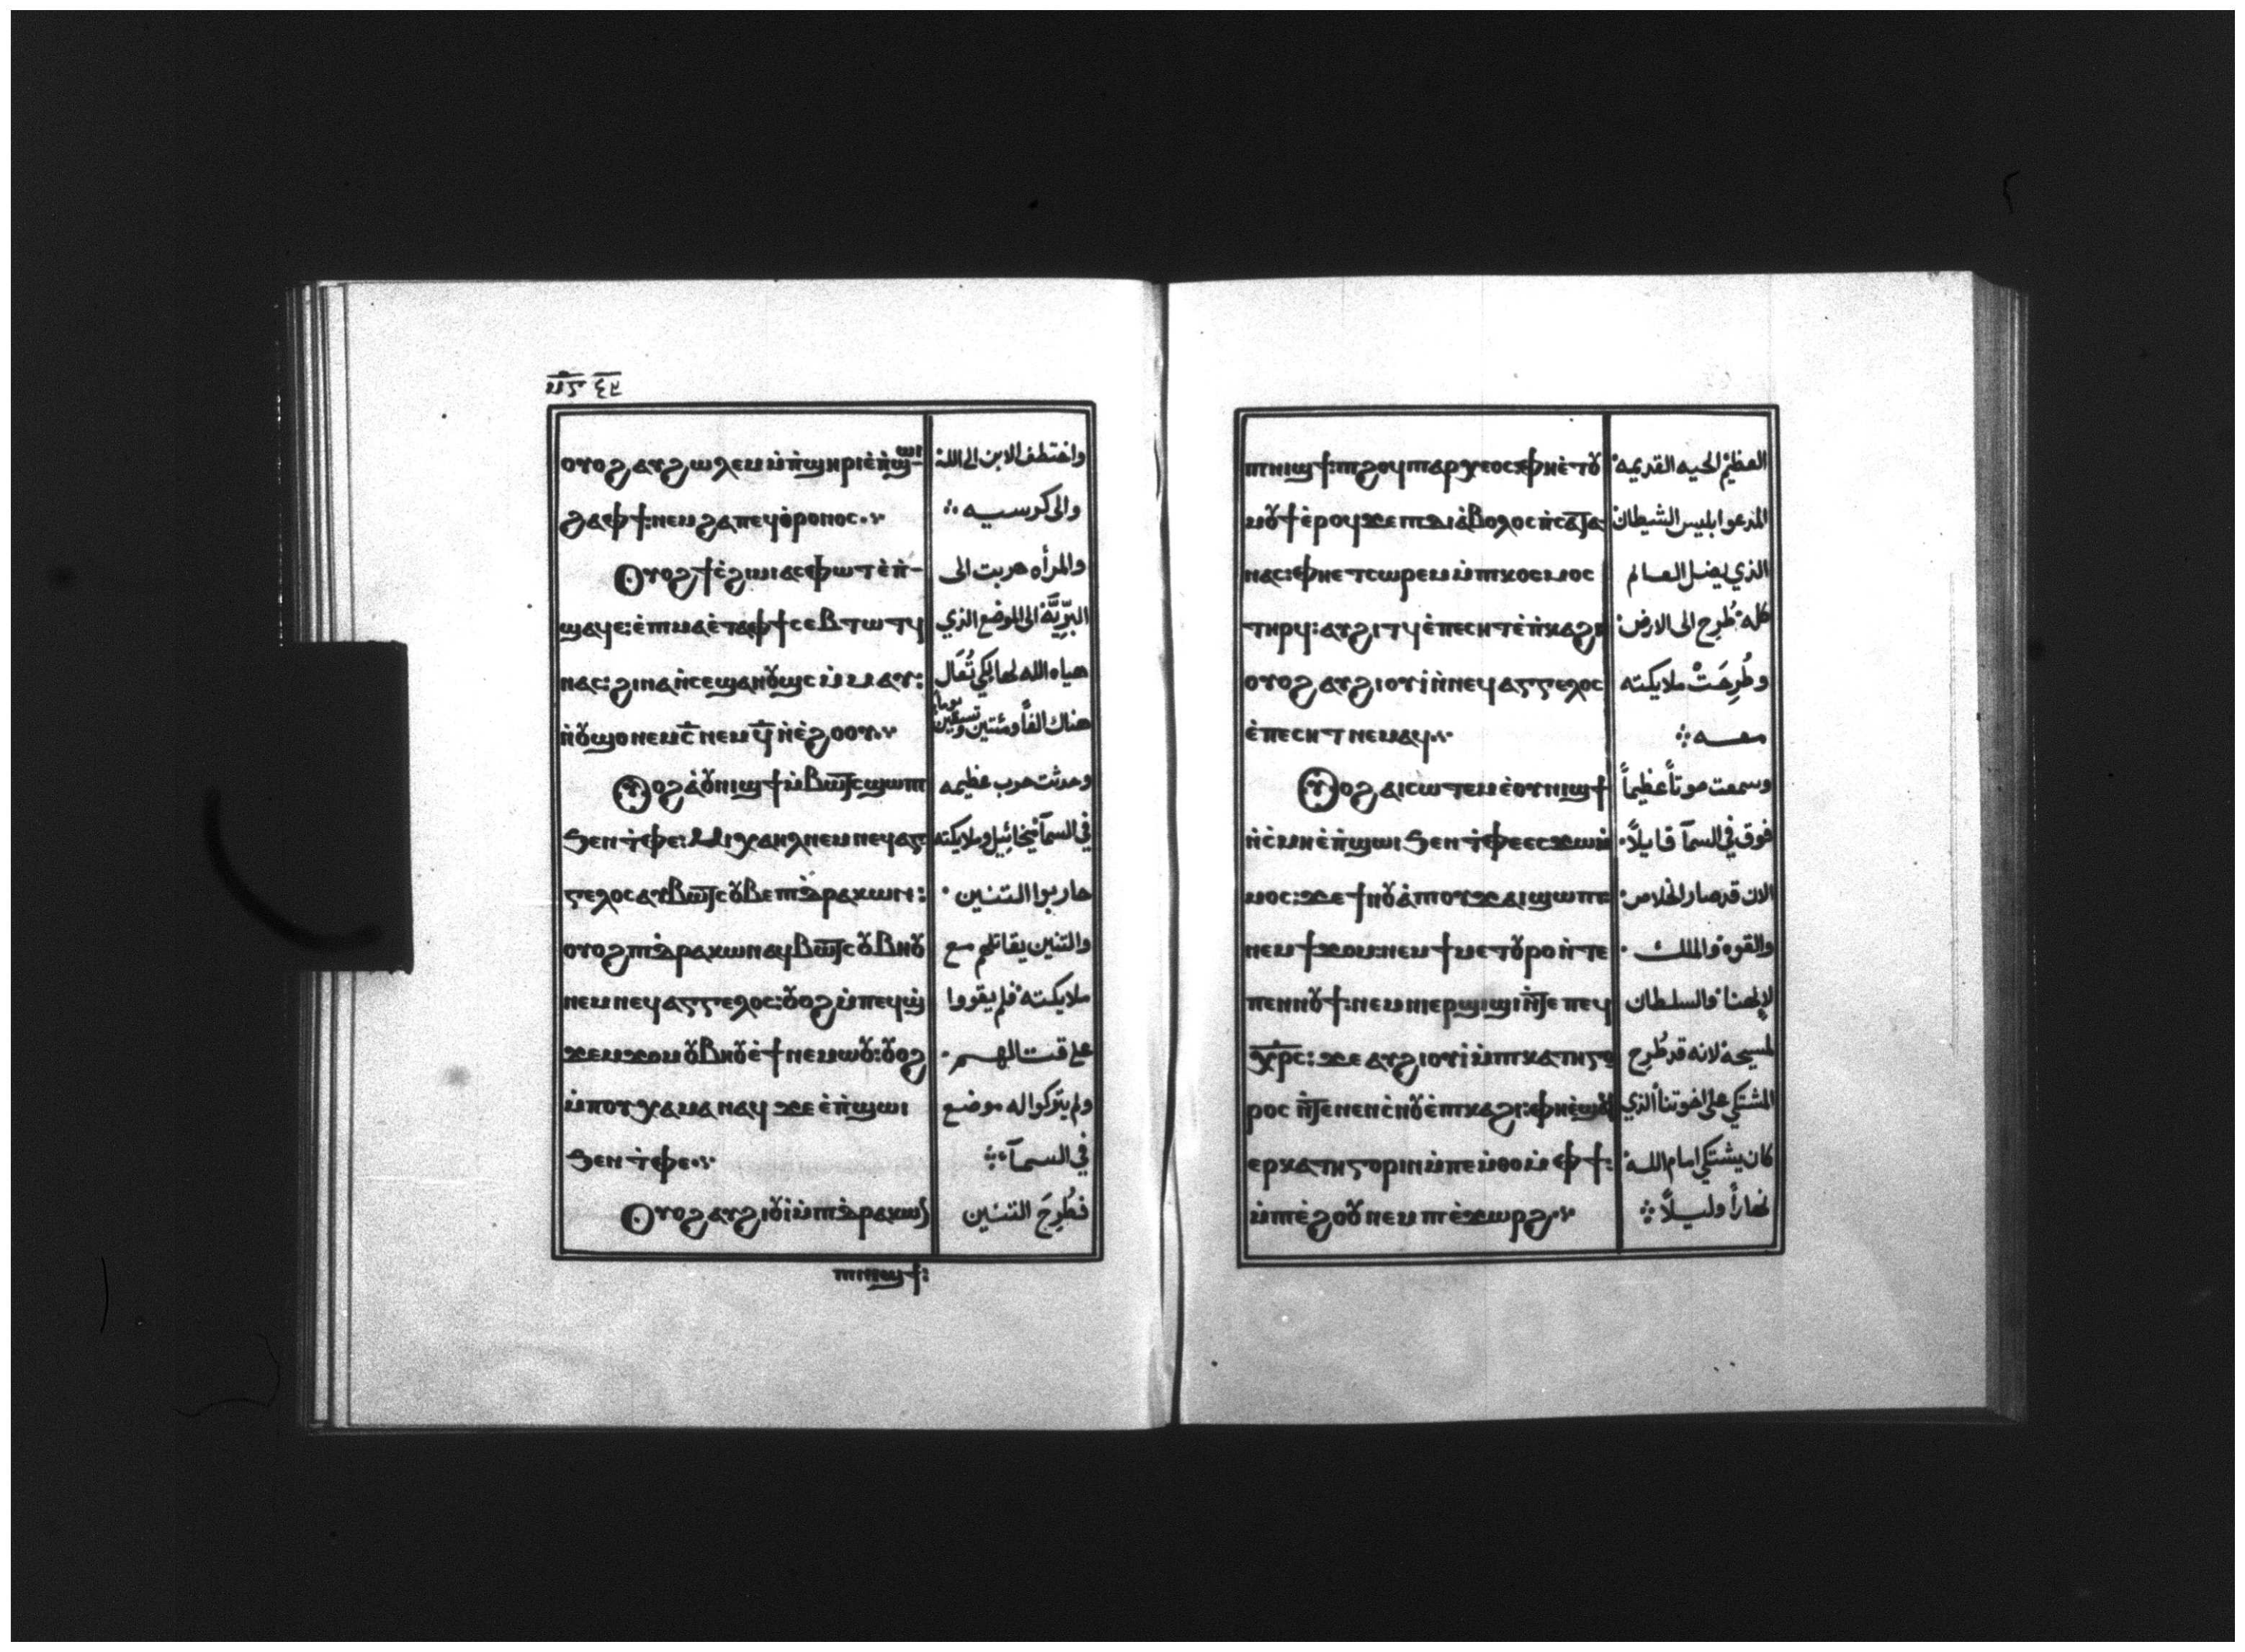 ⲙ̅ⲋ̅
ⲟⲩⲟϩ ⲁⲩϩⲱⲗⲉⲙ ⲙ̀ⲡ̀ϣⲏⲣⲓ ⲉ̀ⲡ̀ϣⲱⲓ
ϩⲁ ⲫϯ: ⲛⲉⲙ ϩⲁ ⲡⲉϥⲑ̀ⲣⲟⲛⲟⲥ
Ⲟⲩⲟϩ ϯⲥ̀ϩⲓⲙⲓ ⲁⲥⲫⲱⲧ ⲉ̀ⲡ̀-
ϣⲁϥⲉ: ⲉ̀ⲡⲙⲁ ⲉ̀ⲧⲁ ⲫϯ ⲥⲉⲃⲧⲱⲧϥ
ⲛⲁⲥ: ϩⲓⲛⲁ ⲛ̀ⲥⲉϣⲁⲛⲟⲩϣⲥ ⲙ̀ⲙⲁⲩ:
ⲛ̀ⲟⲩϣⲟ ⲛⲉⲙ ⲥ̅ ⲛⲉⲙ ϥ̅ ⲛ̀ⲉ̀ϩⲟⲟⲩ
Ⲟⲩⲟϩ ⲁ̀ⲟⲩⲛⲓϣϯ ⲙ̀ⲃⲱⲧⲥ ϣⲱⲡⲓ
ϧⲉⲛ ⲧ̀ⲫⲉ: Ⲙⲓⲭⲁⲏⲗ ⲛⲉⲙ ⲛⲉϥⲁⲅ-
ⲅⲉⲗⲟⲥ ⲁⲩⲃⲱⲧⲥ ⲟⲩⲃⲉ ⲡⲇ̀ⲣⲁⲕⲱⲛ:
ⲟⲩⲟϩ ⲡⲇ̀ⲣⲁⲕⲱⲛ ⲁϥⲃⲱⲧⲥ ⲟⲩⲃⲏⲟⲩ
ⲛⲉⲙ ⲛⲉϥⲁⲅⲅⲉⲗⲟⲥ: ⲟⲩⲟϩ ⲙ̀ⲡⲉϥϣ̀
ϫⲉⲙϫⲟⲙ ⲟⲩⲃⲏⲟⲩ ⲉ̀ϯ ⲛⲉⲙⲱⲟⲩ: ⲟⲩⲟϩ
ⲙ̀ⲡⲟⲩⲭⲁ ⲙⲁ ⲛⲁϥ ϫⲉ ⲉ̀ⲡ̀ϣⲱⲓ
ϧⲉⲛ ⲧ̀ⲫⲉ
Ⲟⲩⲟϩ ⲁⲩϩⲓⲟⲩⲓ̀ ⲙ̀ⲡⲇ̀ⲣⲁⲕⲱⲛ
ⲡⲛⲓϣϯ:
واختطف الابن الى الله
والى كرسيه
والمرأه هربت الى
البرّيّة الى الموضع الذي
هياه الله لها لكي تُعَال
هناك الفًا ومئتين وتسعين يوماً
وحدثت حرب عظيمه
في السمآ ميخائيل وملايكته
حاربوا التنين
والتنين يقاتلهم مع
ملايكته فلم يقووا
على قتالهم
ولم يتركوا له موضع
في السمآ
فطُرِحَ التنين
ⲡⲛⲓϣϯ: ⲡϩⲟϥ ⲡⲁⲣⲭⲉⲟⲥ ⲫⲏ ⲉ̀ⲧⲟⲩ
ⲙⲟⲩϯ ⲉ̀ⲣⲟϥ ϫⲉ ⲡⲇⲓⲁ̀ⲃⲟⲗⲟⲥ ⲛ̀ⲥⲁⲧⲁ-
ⲛⲁⲥ: ⲫⲏ ⲉⲧⲥⲱⲣⲉⲙ ⲙ̀ⲡⲕⲟⲥⲙⲟⲥ
ⲧⲏⲣϥ: ⲁⲩϩⲓⲧϥ ⲉ̀ⲡⲉⲥⲏⲧ ⲉ̀ⲡ̀ⲕⲁϩⲓ
ⲟⲩⲟϩ ⲁⲩϩⲓⲟⲩⲓ̀ ⲛ̀ⲛⲉϥⲁⲅⲅⲉⲗⲟⲥ
ⲉ̀ⲡⲉⲥⲏⲧ ⲛⲉⲙⲁϥ
Ⲟⲩⲟϩ ⲁⲓⲥⲱⲧⲉⲙ ⲉ̀ⲟⲩⲛⲓϣϯ
ⲛ̀ⲥ̀ⲙⲏ ⲉ̀ⲡ̀ϣⲱⲓ ϧⲉⲛ ⲧ̀ⲫⲉ ⲉⲥϫⲱⲙ̀
ⲙⲟⲥ: ϫⲉ ϯⲛⲟⲩ ⲁ̀ ⲡⲟⲩϫⲁⲓ ϣⲱⲡⲓ
ⲛⲉⲙ ϯϫⲟⲙ: ⲛⲉⲙ ϯⲙⲉⲧⲟⲩⲣⲟ ⲛ̀ⲧⲉ
ⲡⲉⲛⲛⲟⲩϯ: ⲛⲉⲙ ⲡⲓⲉⲣϣⲓϣⲓ ⲛ̀ⲧⲉ ⲡⲉϥ
ⲭ̅ⲣ̅ⲥ̅: ϫⲉ ⲁⲩϩⲓⲟⲩⲓ̀ ⲙ̀ⲡⲕⲁⲧⲏⲅⲟ
ⲣⲟⲥ ⲛ̀ⲧⲉ ⲛⲉⲛⲥ̀ⲛⲟⲩ ⲉ̀ⲡⲕⲁϩⲓ: ⲫⲏ ⲉ̀ⲛⲁϥ
ⲉⲣⲕⲁⲧⲏⲅⲟⲣⲓⲛ ⲙ̀ⲡⲉⲙ̀ⲑⲟ ⲙ̀ⲫϯ:
ⲙ̀ⲡⲉ̀ϩⲟⲟⲩ ⲛⲉⲙ ⲡⲉ̀ϫⲱⲣϩ
العظيم الحيه القديمه
المدعوا بليس الشيطان
الذي يضل العالم
كله طُرح الى الارض
وطُرِحَتْ ملايكته
معه
وسمعت صوتاً عظيماً
فوق في السمآ قايلاً
الان قد صار الخلاص
والقوه والملك
لإلهنا والسلطان
لمسيحه لانه قد طُرح
المشتكي على اخوتنا الذي
كان يشتكي امام الله
نهاراً وليلاً